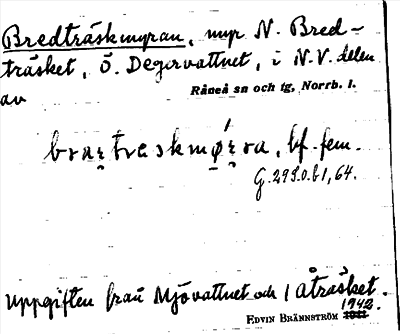 Bredträskmyran, myr N. Bred-
träsket, Ö. Degervattnet, i N.V. delen
av Råneå sn och tg, Norrb. l.
bf. fem.
G.293.0.b1,64.
Uppgiften från Mjövattnet och Åträsket.
1942.
EDVIN BRÄNNSTRÖM